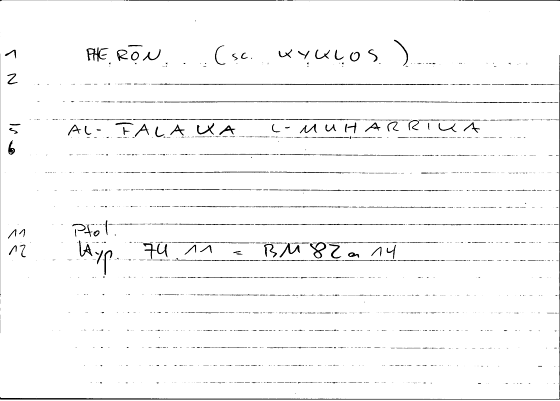 1 PHERŌN (sc. KYKLOS)
2
5 AL-FALAKA L-MUHARRIKA
6
11 Ptol.
12 Hyp. 74.11 = BM 82a14